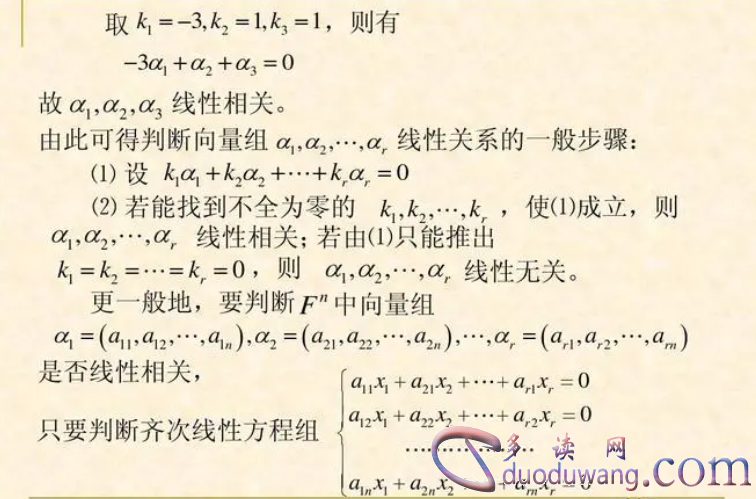 取 k₁=-3,k₂=1,k₃=1，则有
-3α₁+α₂+α₃=0
故 α₁,α₂,α₃ 线性相关。
由此可得判断向量组 α₁,α₂,⋯,αᵣ 线性关系的一般步骤：
⑴ 设 k₁α₁+k₂α₂+⋯+kᵣαᵣ=0
⑵ 若能找到不全为零的 k₁,k₂,⋯,kᵣ ，使⑴成立，则
α₁,α₂,⋯,αᵣ 线性相关；若由⑴只能推出
k₁=k₂=⋯=kᵣ=0，则 α₁,α₂,⋯,αᵣ 线性无关。
更一般地，要判断Fⁿ中向量组
α₁=(a₁₁,a₁₂,⋯,a₁ₙ),α₂=(a₂₁,a₂₂,⋯,a₂ₙ),⋯,αᵣ=(aᵣ₁,aᵣ₂,⋯,aᵣₙ)
是否线性相关，
只要判断齐次线性方程组
a₁₁x₁+a₂₁x₂+⋯+aᵣ₁xᵣ=0
a₁₂x₁+a₂₂x₂+⋯+aᵣ₂xᵣ=0
⋯⋯⋯⋯⋯⋯
a₁ₙx₁+a₂ₙx₂+⋯+aᵣₙxᵣ=0
多读网
duoduwang.com